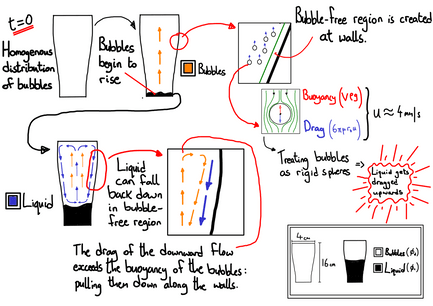 t=0
Homogenous
distribution
of bubbles
Bubbles
begin to
rise
Bubbles
Bubble-free region is created
at walls.
Buoyancy (Vρg)
Drag (6πμr₀u)
u ≈ 4mm/s
Treating bubbles
as rigid spheres
Liquid gets
dragged
upwards
Liquid
Liquid
can fall
back down
in bubble-
free region
The drag of the downward flow
exceeds the buoyancy of the bubbles:
pulling them down along the walls.
4cm
16cm
Bubbles
Liquid